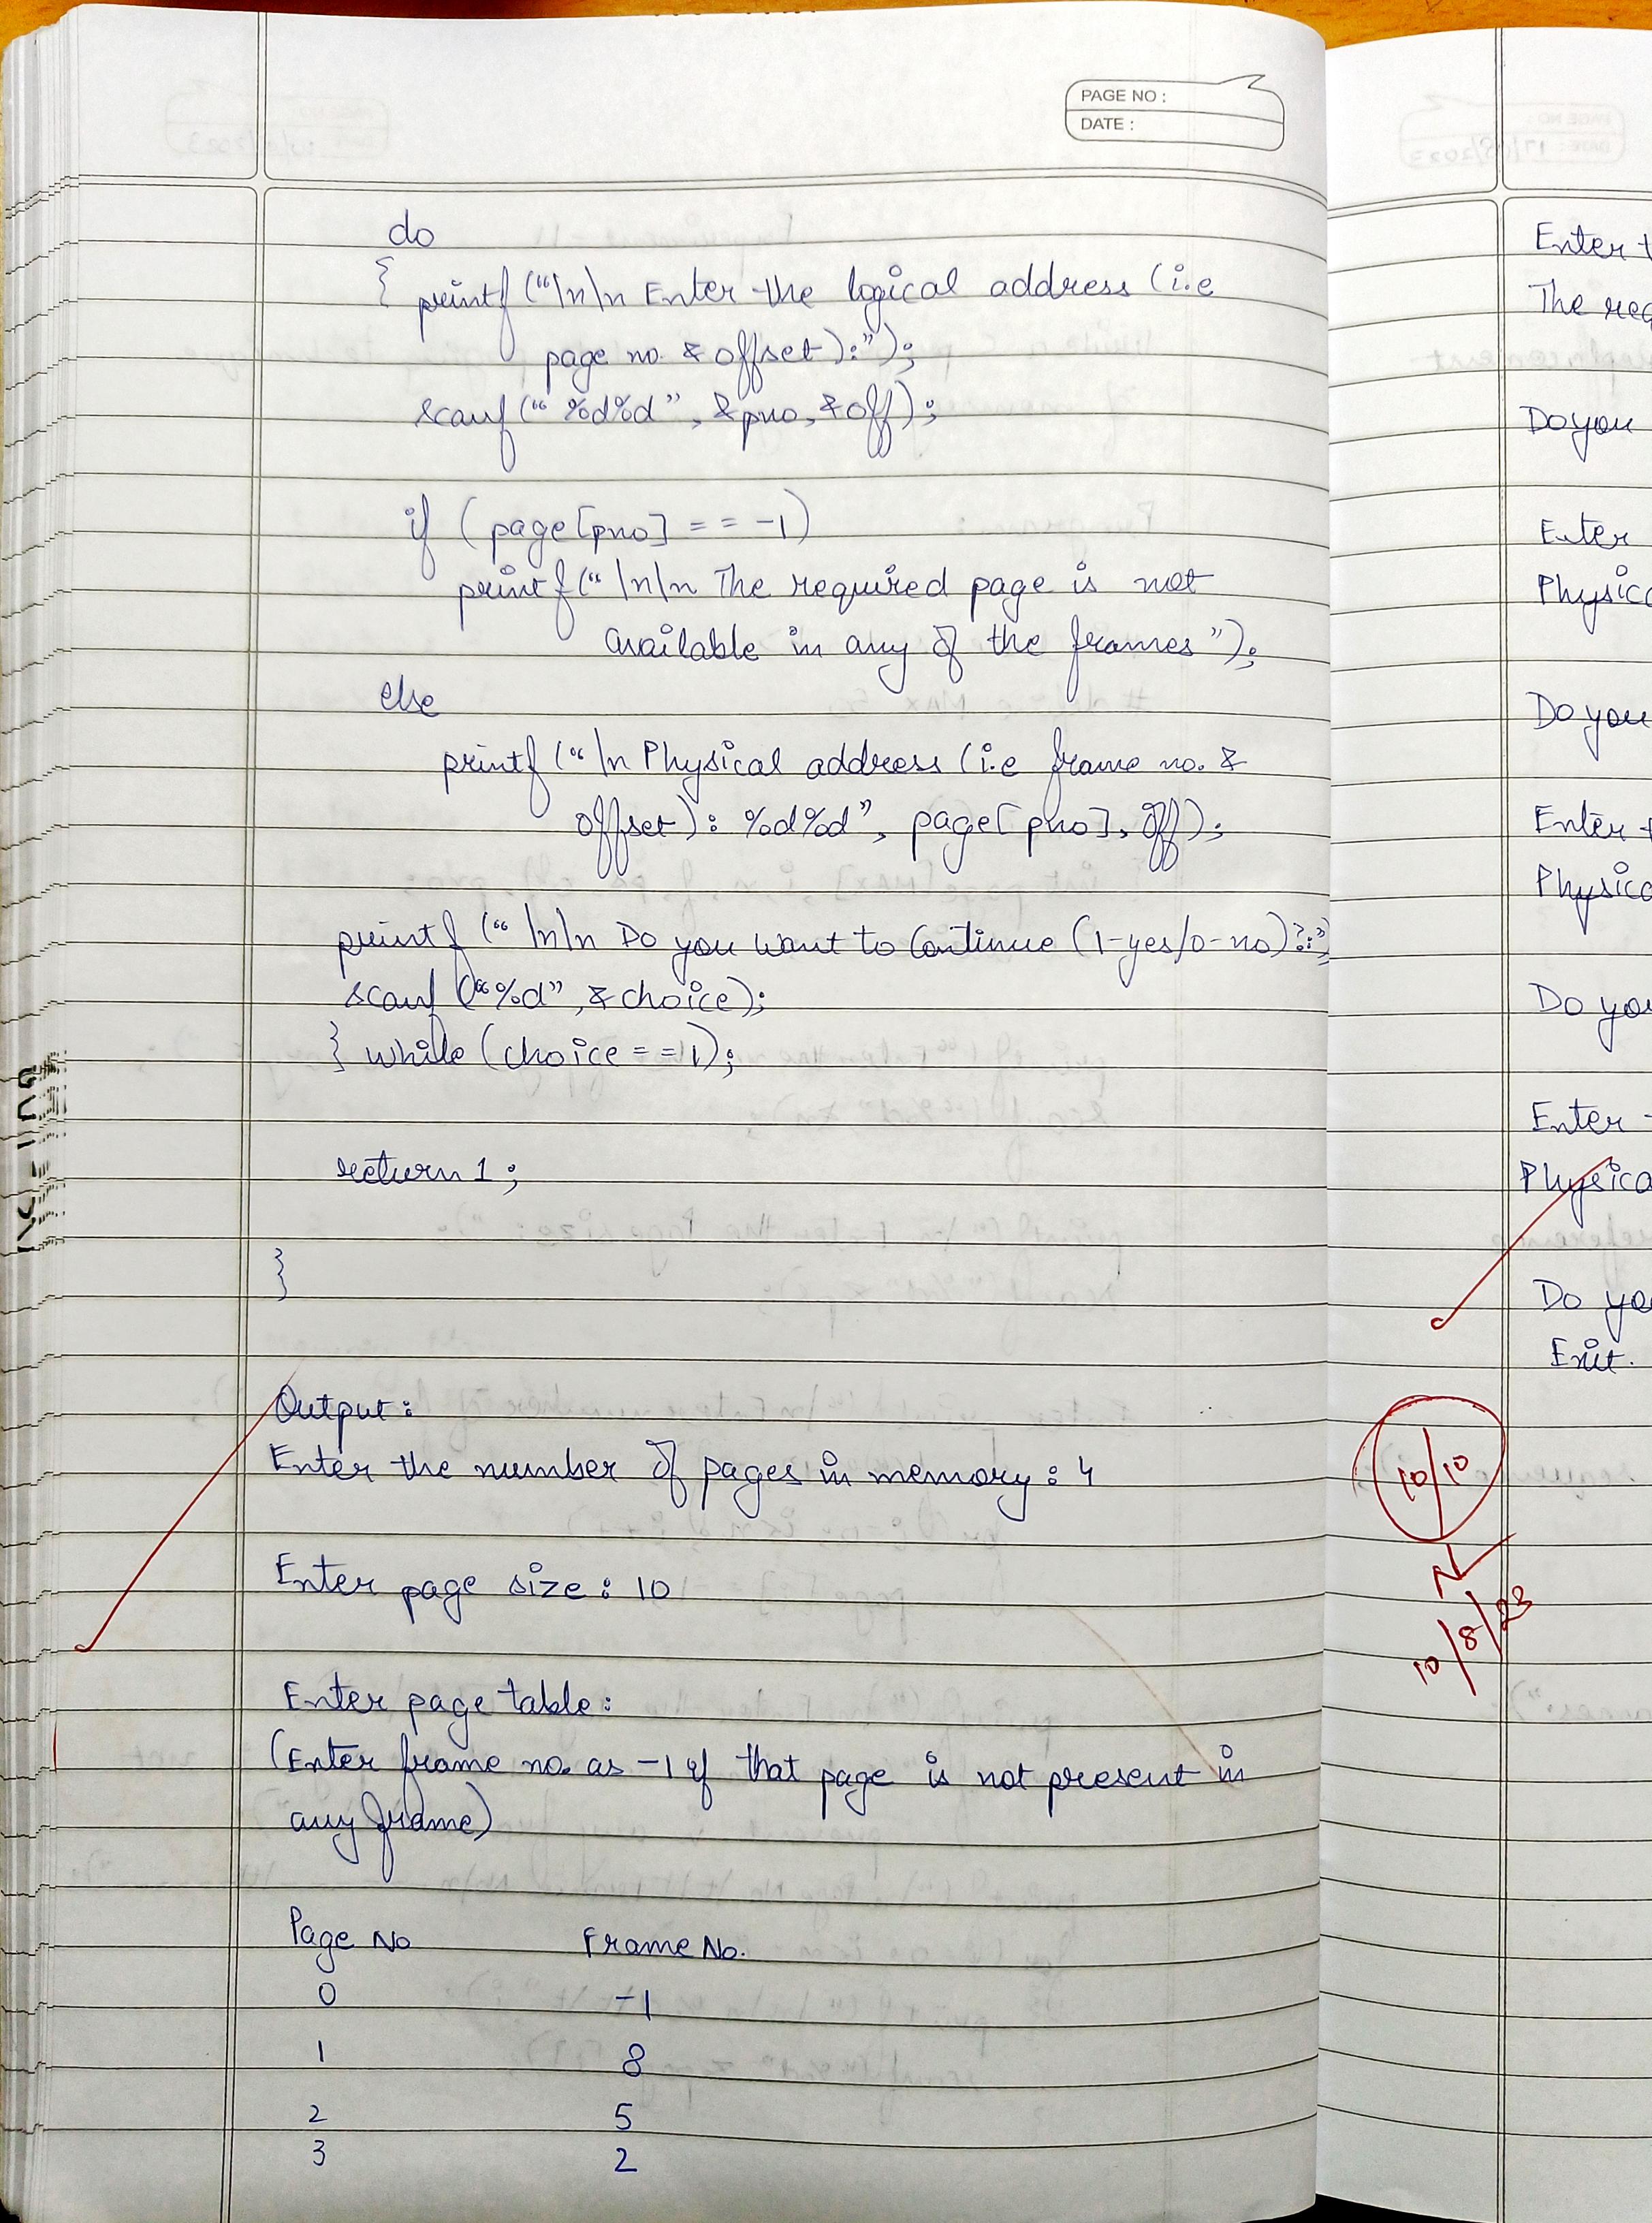 PAGE NO :
DATE :
do
{ printf ("\n\n Enter the logical address (i.e
page no. & offset):");
scanf (" %d%d", &pno, &off);
if (page[pno] == -1)
printf (" \n\n The required page is not
available in any of the frames");
else
printf ("\n Physical address (i.e frame no. &
offset): %d%d", page[pno], off);
printf (" \n\n Do you want to Continue (1-yes/0-no)?:")
scanf ("%d", &choice);
} while (choice == 1);
return 1;
}
Output:
Enter the number of pages in memory: 4
Enter page size: 10
Enter page table:
(Enter frame no. as -1 if that page is not present in
any frame)
Page No Frame No.
0 -1
1 8
2 5
3 2
Enter
The
Do you
Enter
Physica
Do you
Enter
Physica
Do you
Enter
Physica
Do you
Exit.
10/10
10/8/23